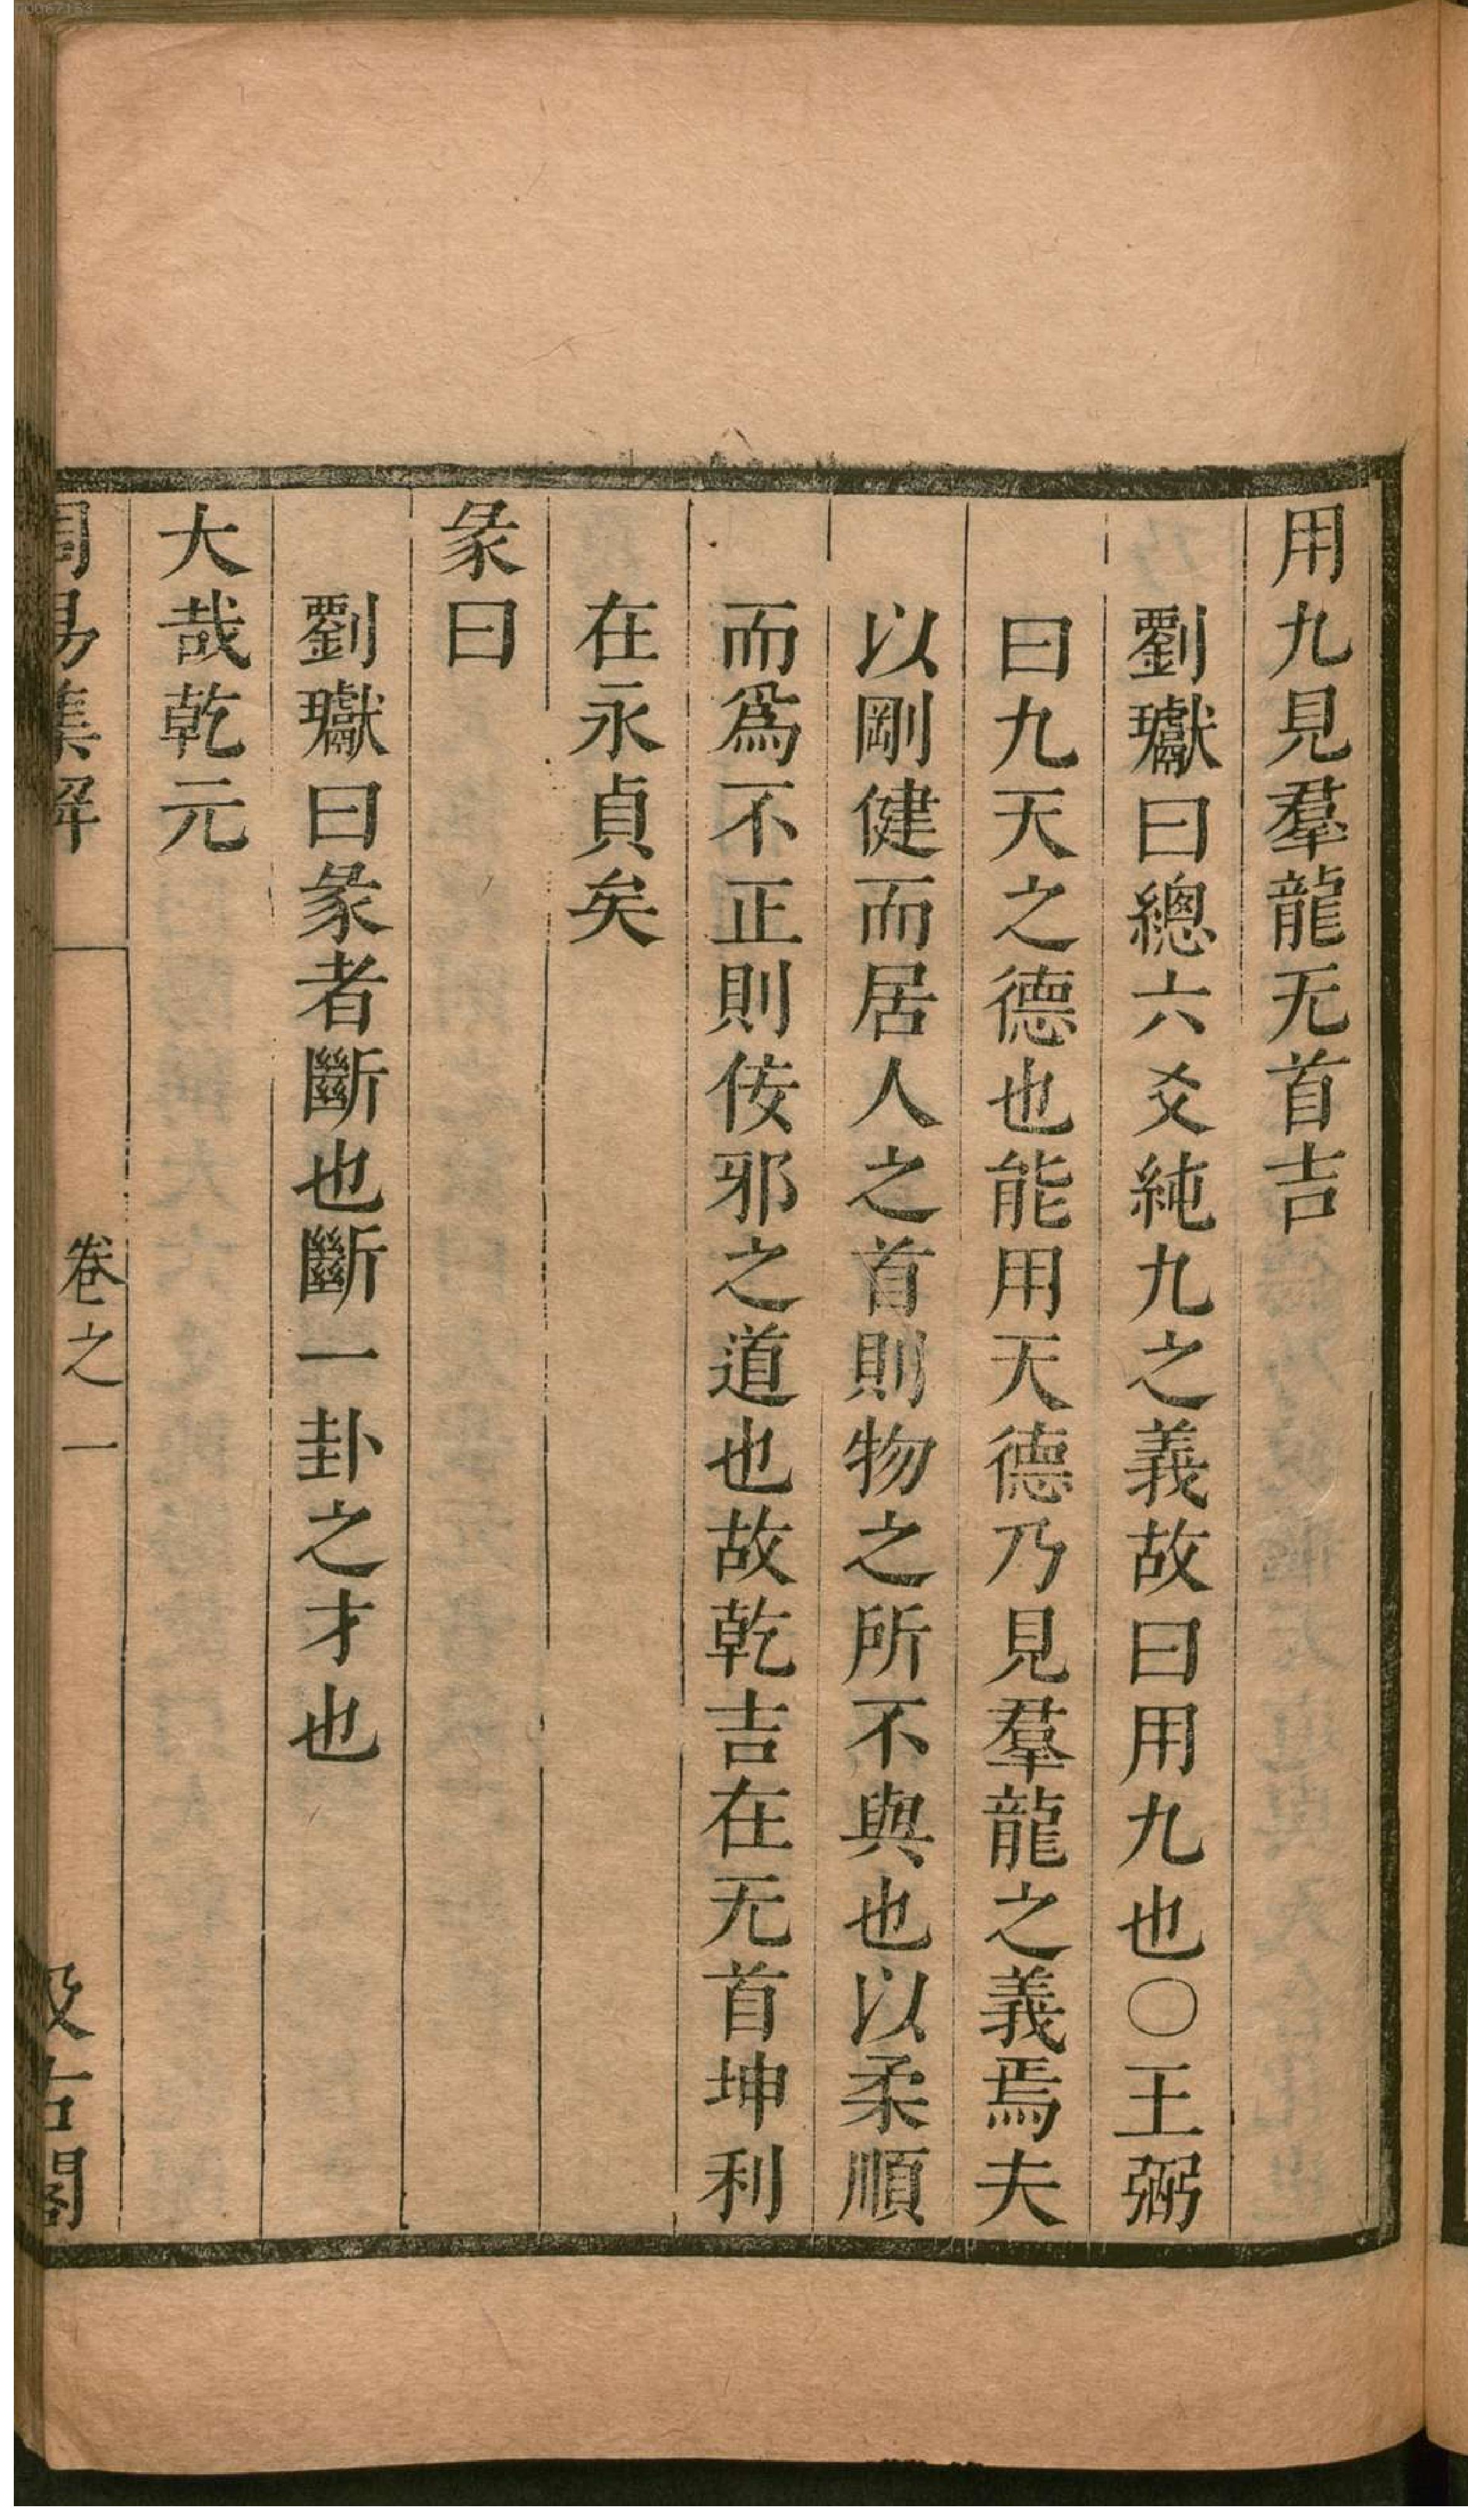 用九見羣龍无首吉
劉瓛曰總六爻純九之義故曰用九也○王弼
曰九天之德也能用天德乃見羣龍之義焉夫
以剛健而居人之首則物之所不與也以柔順
而爲不正則佞邪之道也故乾吉在无首坤利
在永貞矣
彖曰
劉瓛曰彖者斷也斷一卦之才也
大哉乾元
周易集解 卷之一 汲古閣